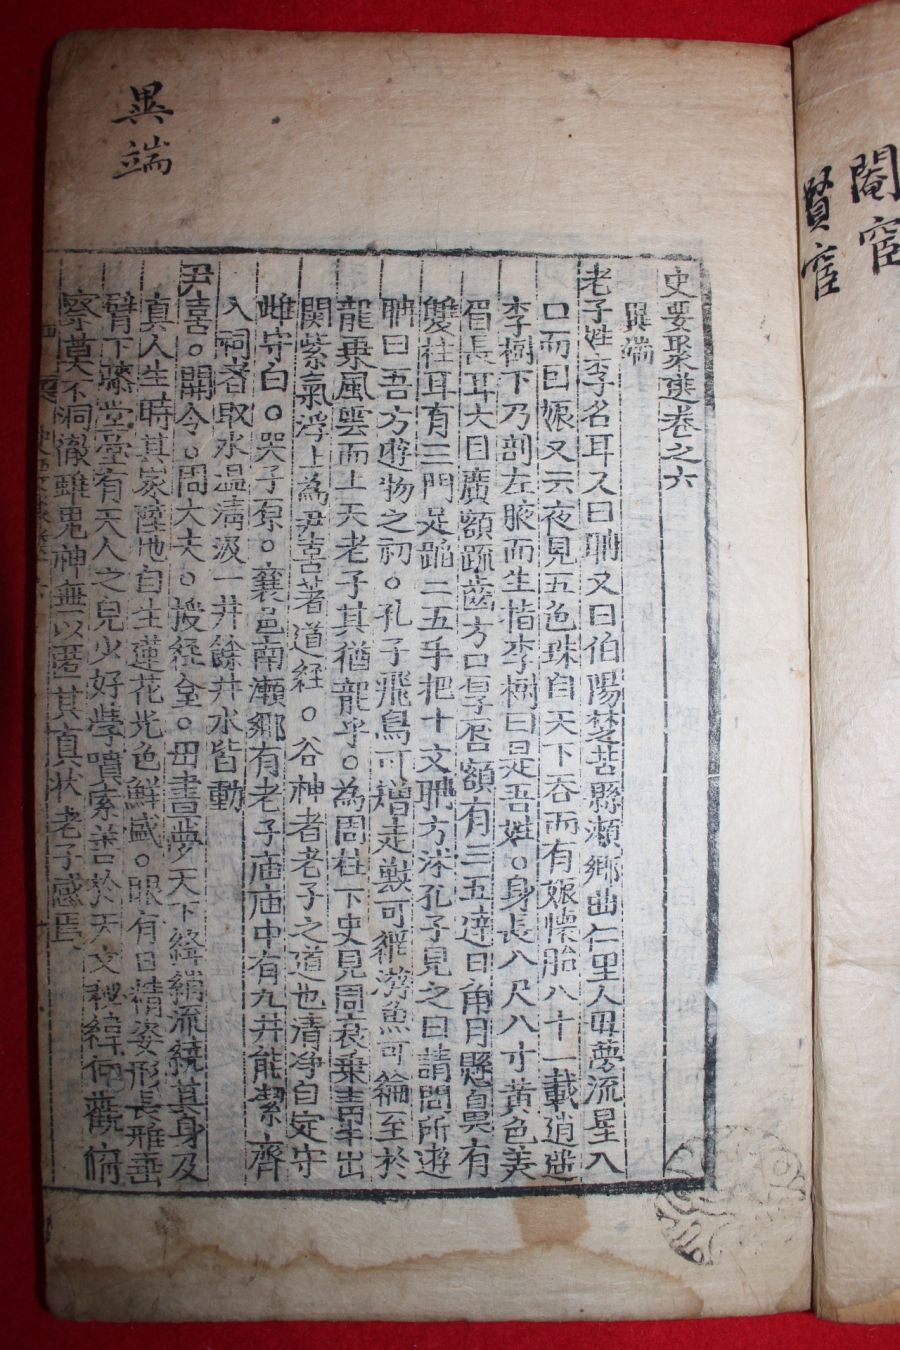 閹宦
賢宦
異端
史要聚選卷之六
異端
老子姓李名耳又曰聃又曰伯陽楚苦縣瀬鄉曲仁里人毋夢流星入
口而曰娠又云夜見五色珠自天下吞而有娠懷胎八十一載逍遥
李樹下乃剖左腋而生指李樹曰是吾姓○身長八尺八寸黃色美
眉長耳大目廣額踈齒方口厚唇額有三五達日角月懸鼻有
雙柱耳有三門足蹈二五手把十文聃方沐孔子見之曰請問所遊
聃曰吾方遊物之初○孔子飛鳥可矰走獸可網游魚可綸至於
龍乗風雲而上天老子其猶龍乎○為周柱下史見周衰乗青牛出
關紫氣浮上為尹喜著道経○谷神者老子之道也清净自定守
雌守白○哭子原○襄邑南瀬鄉有老子庙庙中有九井能潔齊
入祠者取水温清汲一井餘井水皆動
尹喜○關令○問大夫○授経全○毋晝夢天下絳綃流繞其身及
真人生時其家陸地自生蓮花光色鮮盛○眼有日精姿形長雅垂
臂下膝堂堂有天人之皃少好學墳索善於天文秘緯仰觀俯
察莫不洞徹雖鬼神無以匿其真状老子感焉